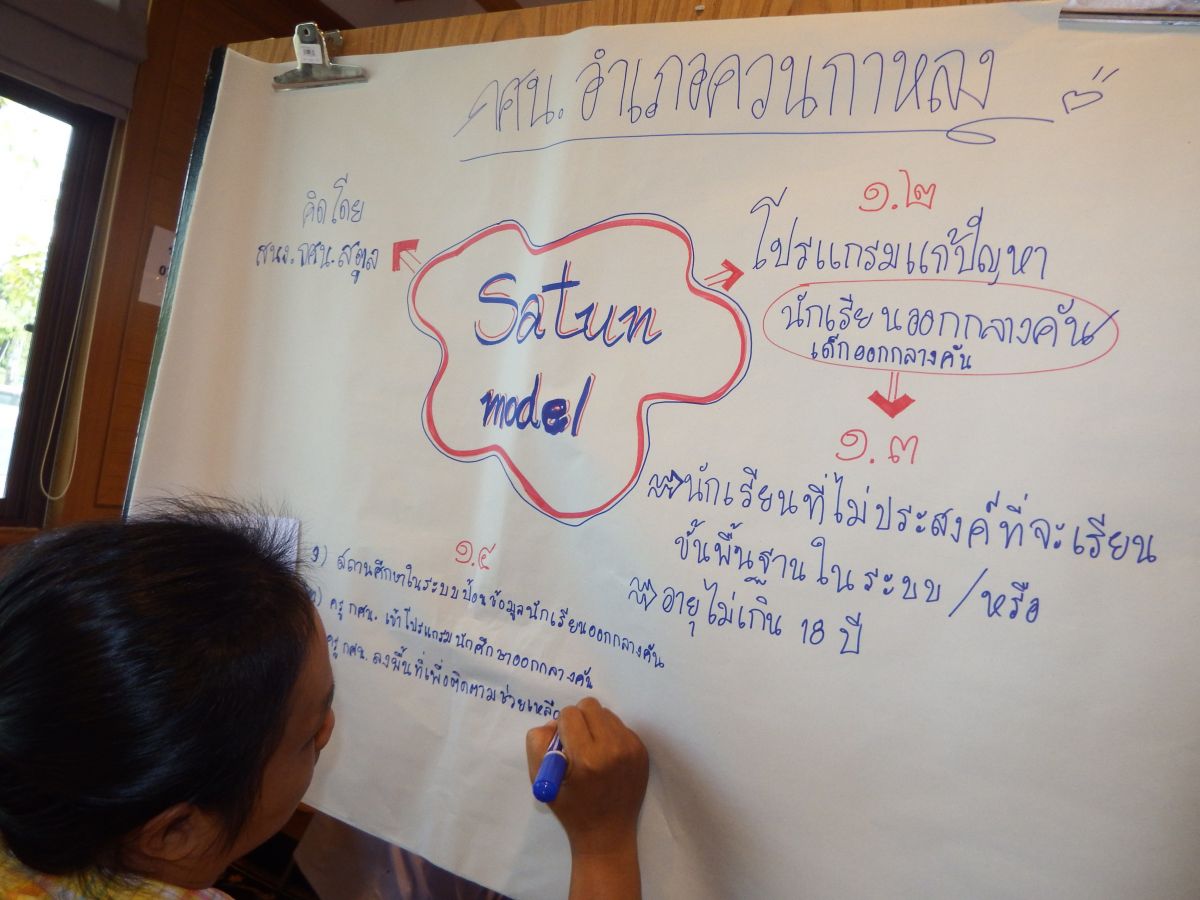 กศน. อำเภอควนกาหลง
คิดโดย
สนง.กศน.สตูล
Satun
model
๑.๒
โปรแกรมแก้ปัญหา
นักเรียนออกกลางคัน
เด็กออกกลางคัน
๑.๓
นักเรียนที่ไม่ประสงค์ที่จะเรียน
ขั้นพื้นฐานในระบบ /หรือ
อายุไม่เกิน 18 ปี
๑.๔
๑) สถานศึกษาในระบบป้อนข้อมูลนักเรียนออกกลางคัน
ครู กศน. เข้าโปรแกรมนักศึกษาออกกลางคัน
ครู กศน. ลงพื้นที่เพื่อติดตามช่วยเหลือ